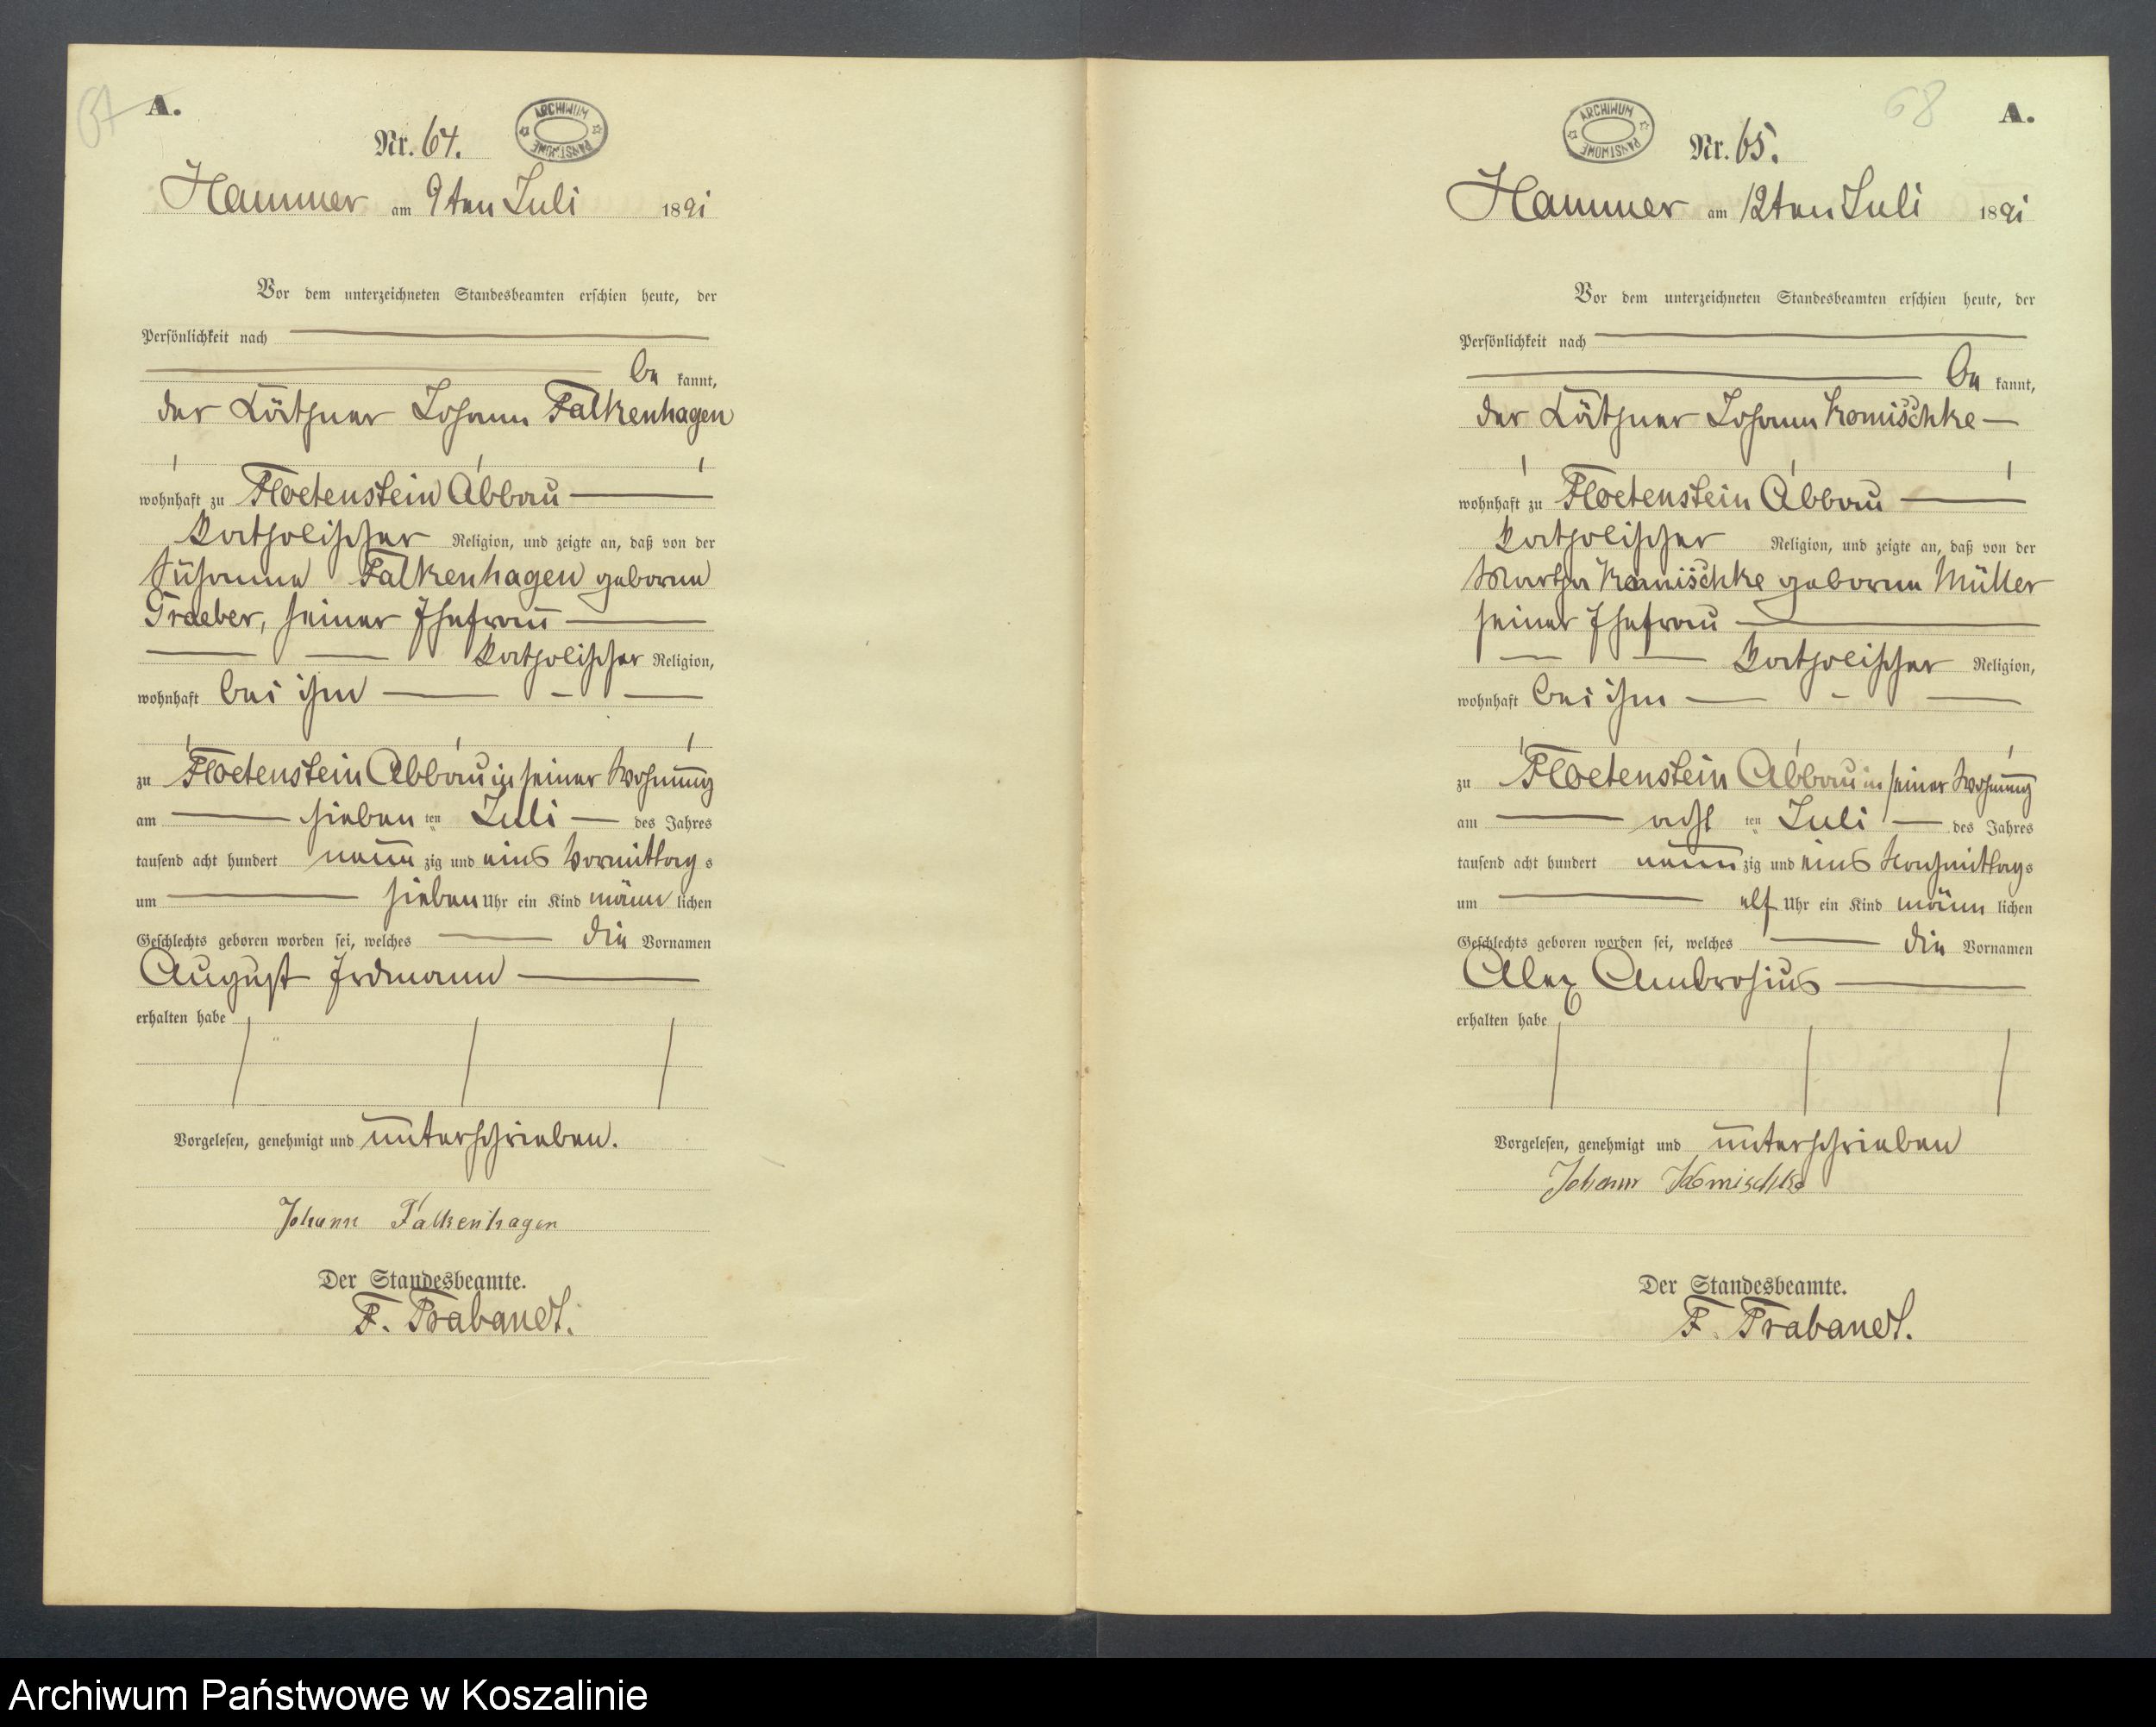 67
A.
Nr. 64.
ARCHIWUM PAŃSTWOWE
Hammer am 9ten Juli 1891
Vor dem unterzeichneten Standesbeamten erschien heute, der
Persönlichkeit nach
be kannt,
der Käthner Johann Falkenhagen
wohnhaft zu Floetenstein Abbau
katholischer Religion, und zeigte an, daß von der
Susanna Falkenhagen geborne
Graeber, seiner Ehefrau
katholischer Religion,
wohnhaft bei ihm
zu Floetenstein Abbau in seiner Wohnung
am sieben ten Juli des Jahres
tausend acht hundert neun zig und eins Vormittag s
um sieben Uhr ein Kind männ lichen
Geschlechts geboren worden sei, welches die Vornamen
August Erdmann
erhalten habe
Vorgelesen, genehmigt und unterschrieben.
Johann Falkenhagen
Der Standesbeamte.
F. Trabandt.
68
A.
ARCHIWUM PAŃSTWOWE
Nr. 65.
Hammer am 12ten Juli 1891
Vor dem unterzeichneten Standesbeamten erschien heute, der
Persönlichkeit nach
be kannt,
der Käthner Johann Komischke
wohnhaft zu Floetenstein Abbau
katholischer Religion, und zeigte an, daß von der
Martha Komischke geborne Müller
seiner Ehefrau
katholischer Religion,
wohnhaft bei ihm
zu Floetenstein Abbau in seiner Wohnung
am acht ten Juli des Jahres
tausend acht hundert neun zig und eins Nachmittags
um elf Uhr ein Kind männ lichen
Geschlechts geboren worden sei, welches die Vornamen
Alex Ambrosius
erhalten habe
Vorgelesen, genehmigt und unterschrieben
Johann Komischke
Der Standesbeamte.
F. Trabandt.
Archiwum Państwowe w Koszalinie